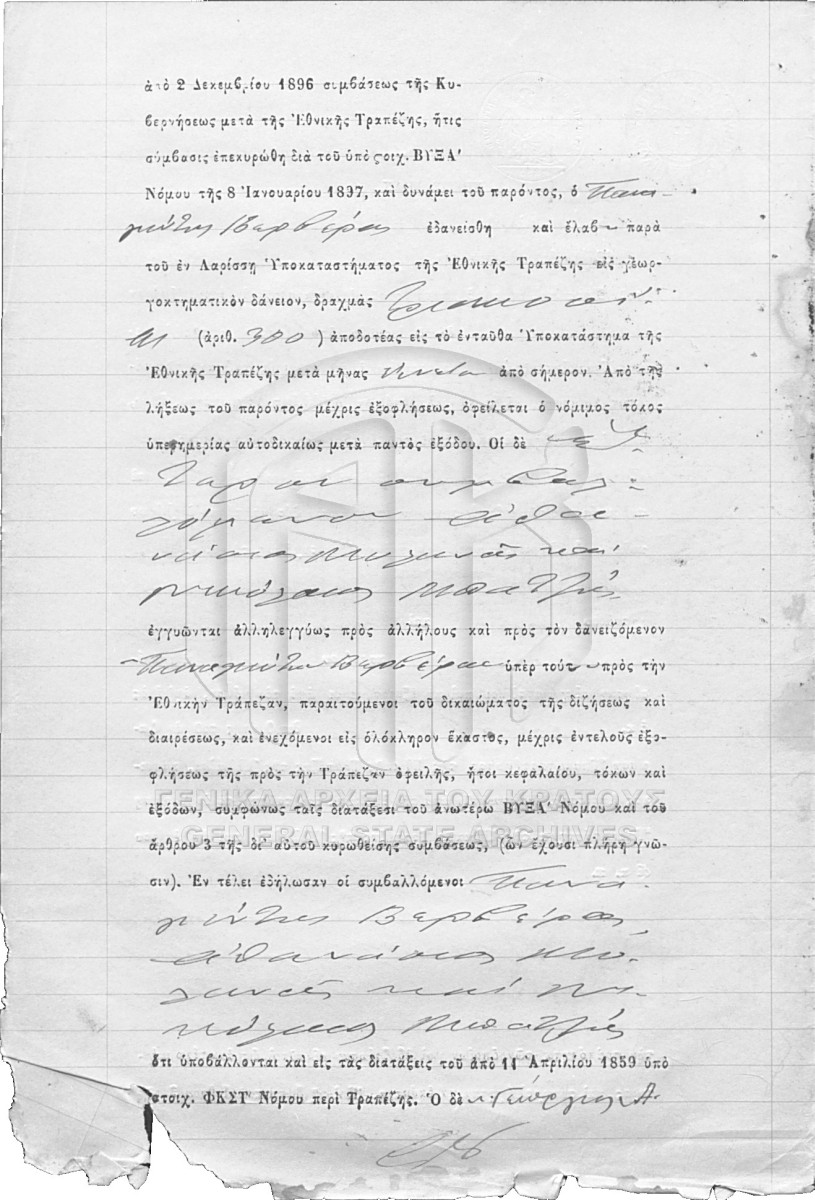 ἀπὸ 2 Δεκεμβρίου 1896 συμβάσεως τῆς Κυ-
βερνήσεως μετὰ τῆς Ἐθνικῆς Τραπέζης, ἥτις
σύμβασις ἐπεκυρώθη διὰ τοῦ ὑπὸ ϛοιχ. ΒΥΞΑʹ
Νόμου τῆς 8 Ἰανουαρίου 1897, καὶ δυνάμει τοῦ παρόντος, ὁ Πανα-
γιώτης Βερβέρας ἐδανείσθη καὶ ἔλαβε παρὰ
τοῦ ἐν Λαρίσσῃ Ὑποκαταστήματος τῆς Ἐθνικῆς Τραπέζης εἰς γεωρ-
γοκτηματικὸν δάνειον, δραχμὰς Τριακοσί-
ας (ἀριθ. 300) ἀποδοτέας εἰς τὸ ἐνταῦθα Ὑποκατάστημα τῆς
Ἐθνικῆς Τραπέζης μετὰ μῆνας ἐννέα ἀπὸ σήμερον. Ἀπὸ τῆς
λήξεως τοῦ παρόντος μέχρις ἐξοφλήσεως, ὀφείλεται ὁ νόμιμος τόκος
ὑπερημερίας αὐτοδικαίως μετὰ παντὸς ἐξόδου. Οἱ δὲ
συμβαλ-
λόμενοι Ἀθα-
νάσιος Μυλωνᾶς καὶ
Νικόλαος Μπατζῆς
ἐγγυῶνται ἀλληλεγγύως πρὸς ἀλλήλους καὶ πρὸς τὸν δανειζόμενον
Παναγιώτην Βερβέραν ὑπὲρ τούτου πρὸς τὴν
Ἐθνικὴν Τράπεζαν, παραιτούμενοι τοῦ δικαιώματος τῆς διζήσεως καὶ
διαιρέσεως, καὶ ἐνεχόμενοι εἰς ὁλόκληρον ἕκαστος, μέχρις ἐντελοῦς ἐξο-
φλήσεως τῆς πρὸς τὴν Τράπεζαν ὀφειλῆς, ἤτοι κεφαλαίου, τόκων καὶ
ΓΕΝΙΚΑ ΑΡΧΕΙΑ ΤΟΥ ΚΡΑΤΟΥΣ
ἐξόδων, συμφώνως ταῖς διατάξεσι τοῦ ἀνωτέρω ΒΥΞΑʹ Νόμου καὶ τοῦ
GENERAL STATE ARCHIVES
ἄρθρου 3 τῆς δι' αὐτοῦ κυρωθείσης συμβάσεως, (ὧν ἔχουσι πλήρη γνῶ-
σιν). Ἐν τέλει ἐδήλωσαν οἱ συμβαλλόμενοι Πανα-
γιώτης Βερβέρας
Ἀθανάσιος Μυ-
λωνᾶς καὶ Νι-
κόλαος Μπατζῆς
ὅτι ὑποβάλλονται καὶ εἰς τὰς διατάξεις τοῦ ἀπὸ 11 Ἀπριλίου 1859 ὑπὸ
στοιχ. ΦΚΣΤʹ Νόμου περὶ Τραπέζης. Ὁ δὲ Γεώργιος Α.